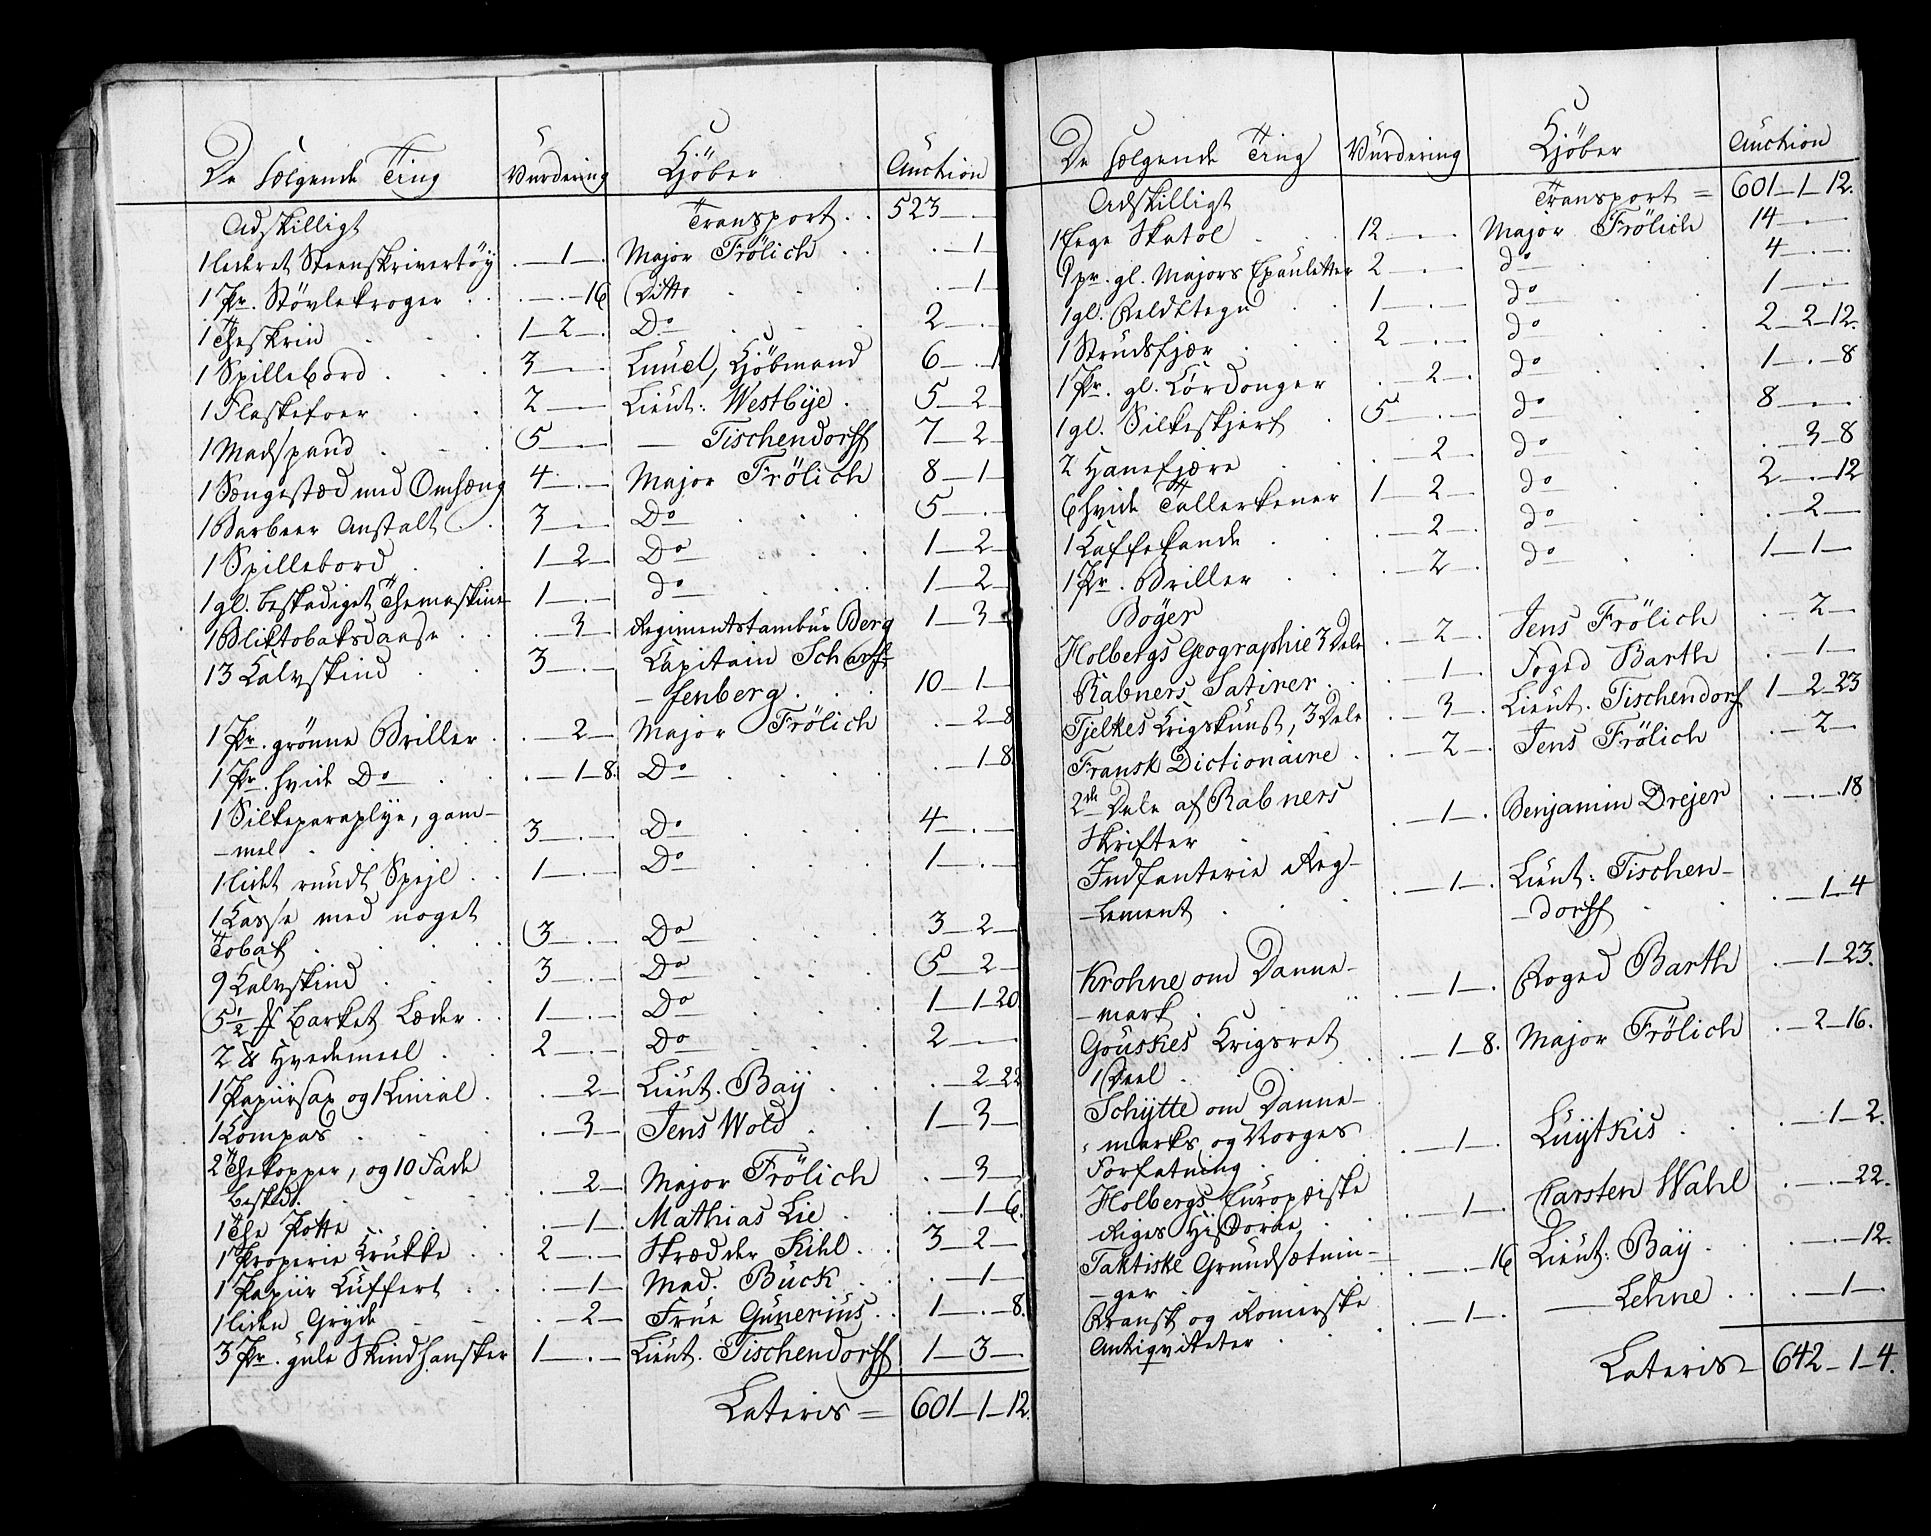 De sælgende Ting Vurdering Kjöber Auction
Adskilligt Transport . . 523 — . —
1 lederet Steenskrivertöy . — 1 — . Major Frölich . . . — 1
1 Pr. Stövlekroger . . . — . — 16 Ditto . . . — 1
1 Theskrin . . 1 — 2 — . Do . . 2 — . —
1 Spillebord . . . 3 — . — Kjöbmand 6 — . — 1
1 Flaskefoer . . 2 — . — Lieut: Westbÿe . 5 — 2 —
1 Madspand . . . 5 — . — — Tischendorff 7 — 2 —
1 Sængestæd med Omhæng 4 — . — Major Frölich 8 — 1 —
1 Barbeer Anstalt . . 3 — . — Do . . . 5 — . —
1 Spillebord . . 1 — 2 — Do . . 1 — 2 —
1 gl. beskadiget Themaskine 1 — . — do . . . 1 — 2 —
1 Bliktobaksdaase . . . — 3 — Regimentstambur Berg 1 — 3 —
13 Kalvskind . . 3 — . — Capitain Scharf-
-fenberg . . . 10 — 1 —
1 Pr. grönne Briller . . — 2 — Major Frölich . — 2 — 8
1 Pr. hvide Do . . . — 1 — 8. Do . . . . — 1 — 8
1 Silkeparaplÿe, gam-
-mel . . . 3 — . — Do . . . 4 — . —
1 lidet rundt Spejl . . 1 — . — Do . . . 1 — . —
1 Kasse med noget
Tobak . . . 3 — . — Do . . . 3 — 2 —
9 Kalvskind . . . 3 — . — Do . . . 5 — 2 —
5 1/2 ℔ barket Læder . . 1 — . — Do . . . 1 — 1 — 20
2 ℔ Hvedemeel . . 2 — . — Do . . . 2 — . —
1 Papiirsax og 1 Linial . . — 2 — Lieut. Baÿ . . . — 2 — 22
1 Kompas . . . . — 3 — Jens Wold . . 1 — 3 —
2 Thekopper, og 10 Fade
beskadt. . . . . — 2 — Major Frölich . — 3 —
1 The Potte . . . . — 1 — Mathias Lie . . — 1 — 6.
1 Properie Krukke . . 2 — . — Skrædder Kihl . . 3 — 2 —
1 Papiir Kuffert . . . — 1 — Mad. Buck . . . — 1 —
1 liden Gryde . . . — 2 — Frue Gunerius . . 1 — . — 8.
3 Pr. gule Skindhansker 1 — . — Lieut. Tischendorff 1 — 3 —
Lateris = 601 — 1 — 12.
De sælgende Ting Vurdering Kjöber Auction
Adskilligt Transport = 601 — 1 — 12.
1 Eege Skatol . . . 12 — . — Major Frölich 14 — . —
1 pr. gl. Majors Epauletter 2 — . — do . . . 4 — . —
1 gl. Feldttegn . . 1 — . — do . . . 1 — . —
1 Strudsfjær . . . 2 — . — do . . . 2 — 2 — 12.
1 Pr. gl. Cordonger . — 2 — . do . . . 1 — . — 8
1 gl. Silkeskjerf . 5 — . — do . . . 8 — . —
2 Hanefjære . . . — 2 — do . . . . — 3 — 8
6 hvide Tallerkener 1 — 2 — do . . . 2 — . — 12
1 Kaffekande . . . — 2 — . do . . . . — 2 —
1 Pr. Briller . . . — 2 — . do . . . 1 — 1 —
Böger
Holbergs Geographie 3 Dele . — 2 — . Jens Frölich . — 2 —
Rabners Satirer . . . — 1 — . Foged Barth . — 1 —
Fjelkes Krigskunst, 3 Dele . — 3 — . Lieut. Tischendorf 1 — 2 — 23
Fransk Dictionaire . . — 2 — . Jens Frölich . — 2 —
2de Dele af Rabners
Skrifter . . — 1 — . Benjamin Drejer . — . — 18
Indfanterie Reg-
-lement . . . . — 1 — . Lieut: Tischen-
-dorff . . . — 1 — 4
Krohne om Danne-
-mark . . . . — 1 — . Foged Barth . — 1 — 23.
Gouskes Krigsret
1 Deel . . . — 1 — 8. Major Frölich . — 2 — 16.
Schÿtte om Danne-
-marks og Norges
Forfatning . . . — 1 — . Luÿtkis . . . — 1 — 2.
Holbergs Europæiske
Riges Historie . . . — 1 — . Carsten Wahl . — . — 22.
Taktiske Grundsætnin-
-ger . . . — . — 16 Lieut: Baÿ . . . — . — 12.
Fransk og Romerske
Antiqviteter . . . — 1 — . — Lehne . . . — 1 —
Lateris = 642 — 1 — 4.